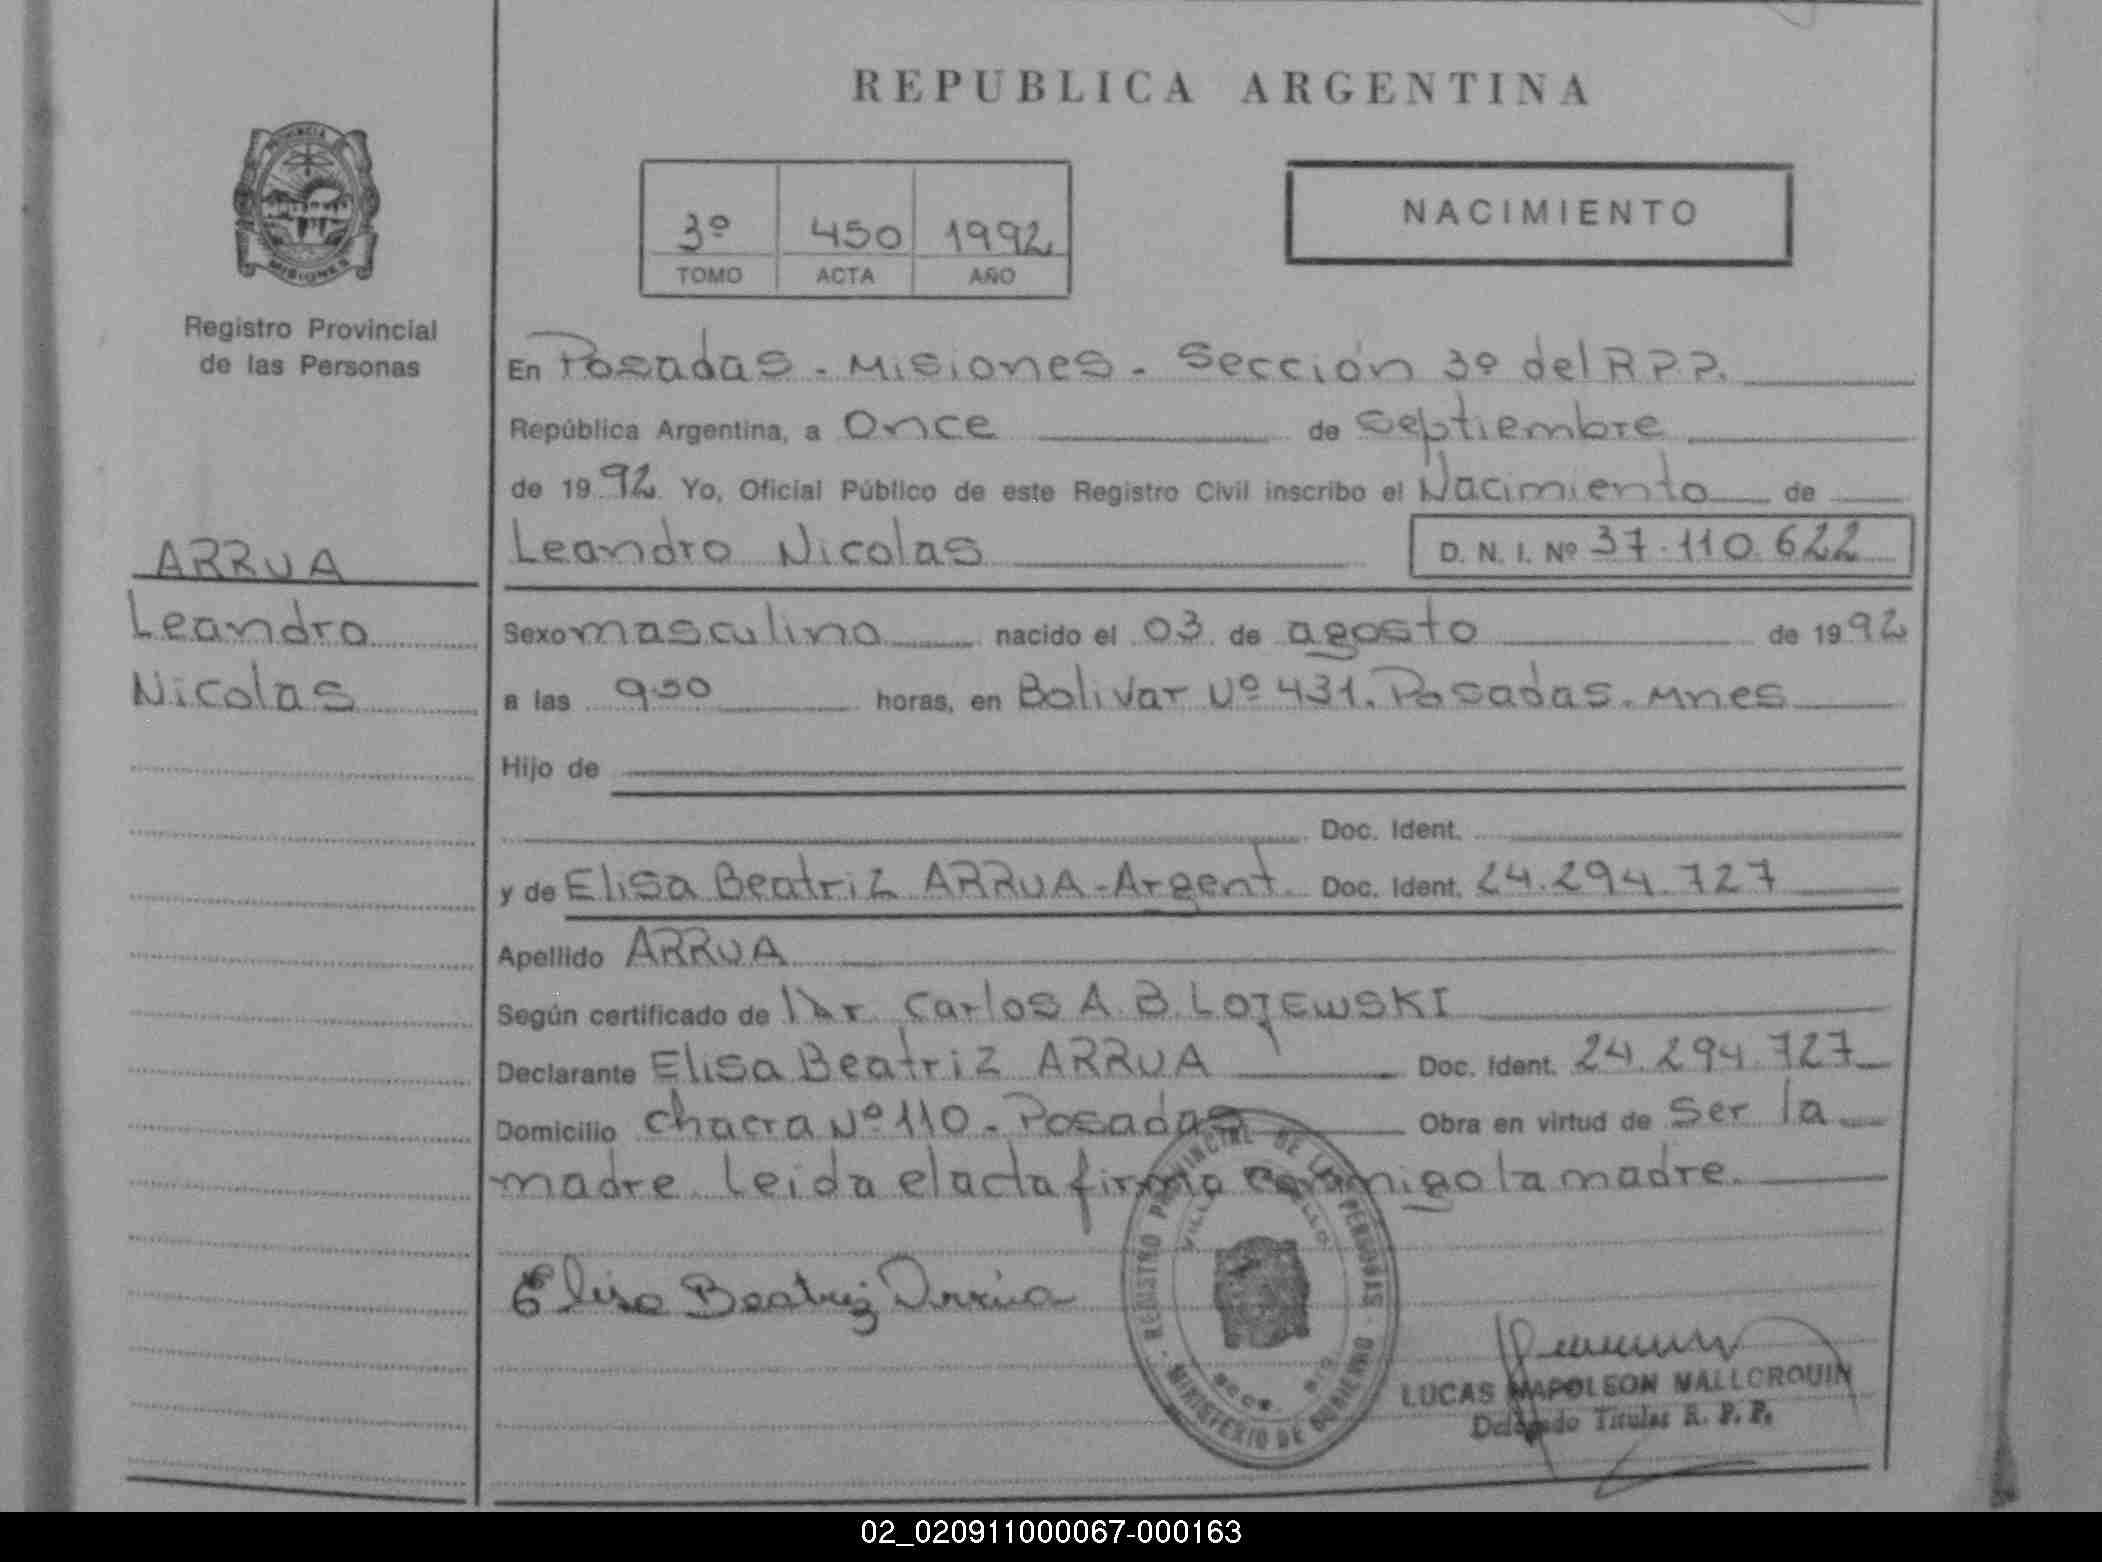 REPUBLICA ARGENTINA
PROVINCIA
MISIONES
Registro Provincial
de las Personas
3º 450 1992
TOMO ACTA AÑO
NACIMIENTO
En Posadas - Misiones - Sección 3º del R.P.P.
República Argentina, a Once de septiembre
de 1992 Yo, Oficial Público de este Registro Civil inscribo el Nacimiento de
Leandro Nicolas D. N. I. Nº 37.110.622
ARRUA
Leandro
Nicolas
Sexo masculino nacido el 03 de agosto de 1992
a las 9:00 horas, en Bolivar Nº 431. Posadas. Mnes
Hijo de
Doc. Ident.
y de Elisa Beatriz ARRUA - Argent. Doc. Ident. 24.294.727
Apellido ARRUA
Según certificado de Dr. Carlos A. B. LOJEWSKI
Declarante Elisa Beatriz ARRUA Doc. Ident. 24.294.727
Domicilio chacra Nº 110 - Posadas Obra en virtud de ser la
madre. Leida el acta firma conmigo la madre.
REGISTRO PROVINCIAL DE LAS PERSONAS
MINISTERIO DE GOBIERNO
Elisa Beatriz Arrua
LUCAS NAPOLEON MALLORQUIN
Delegado Titular R. P. P.
02_020911000067-000163